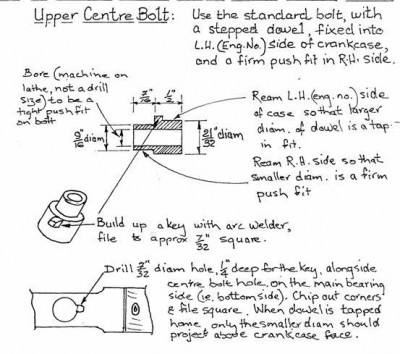 Upper Centre Bolt:
Use the standard bolt, with
a stepped dowel, fixed into
L.H. (Eng. No.) side of crankcase,
and a firm push fit in R.H. side.
Bore (machine on
lathe, not a drill
size) to be a
tight push fit
on bolt
1/2"
9/16" diam
21/32" diam
Ream L.H. (eng. no.) side
of case so that larger
diam. of dowel is a tap
in fit.
Ream R.H. side so that
smaller diam. is a firm
push fit
Build up a key with arc welder,
file to approx 7/32" square.
Drill 7/32" diam hole, 1/4" deep for the key, alongside
centre bolt hole, on the main bearing
side (ie. bottom side). Chip out corners
& file square. When dowel is tapped
home, only the smaller diam should
project above crankcase face.